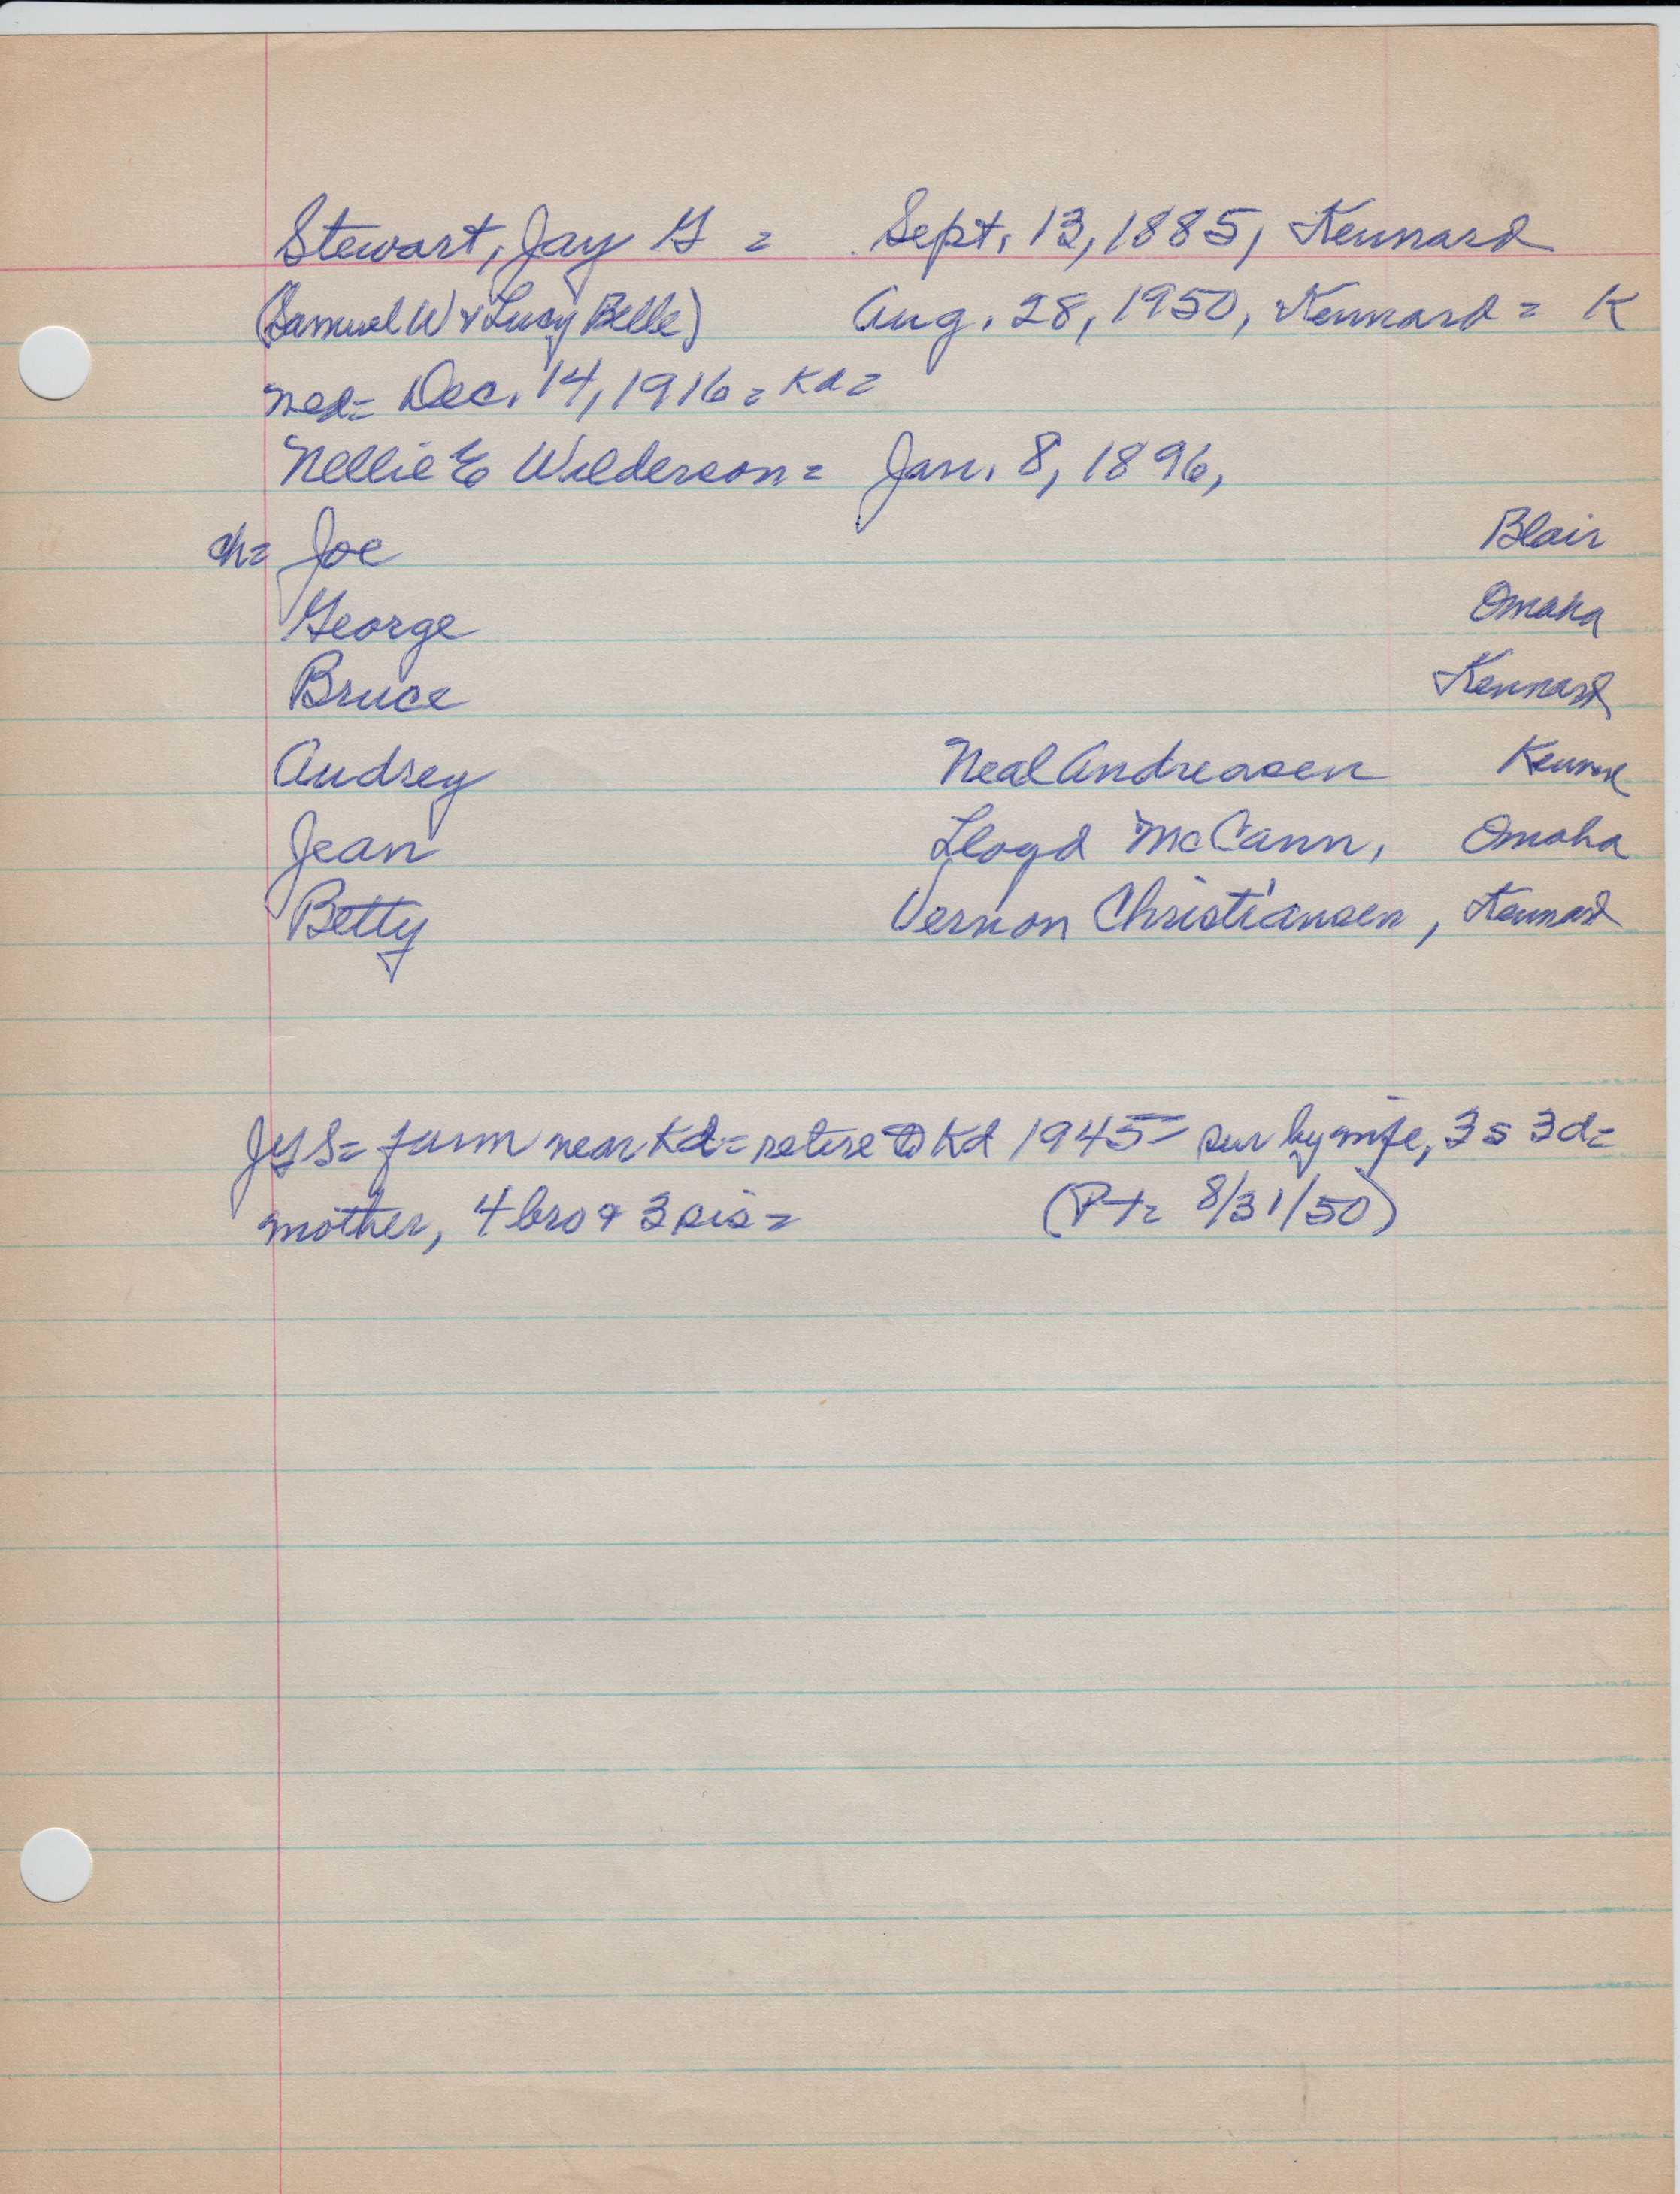 Stewart, Jay G = Sept. 13, 1885, Kennard
(Samuel W & Lucy Belle) Aug. 28, 1950, Kennard = K
med= Dec. 14, 1916 = Kd =
Nellie E Wilderson = Jan. 8, 1896,
ch= Joe Blair
George Omaha
Bruce Kennard
Audrey Neal Andreasen Kennard
Jean Lloyd McCann, Omaha
Betty Vernon Christiansen, Kennard
JGS= farm near Kd = retire to Kd 1945 = sur by wife, 3 s 3 d =
mother, 4 bro & 3 sis = (PT= 8/31/50)